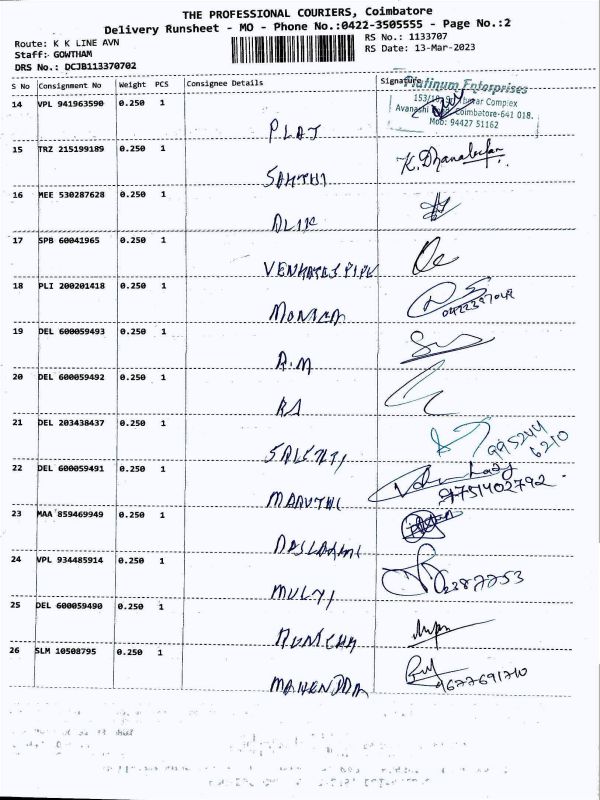 THE PROFESSIONAL COURIERS, Coimbatore
Delivery Runsheet - MO - Phone No.:0422-3505555 - Page No.:2
Route: K K LINE AVN
RS No.: 1133707
Staff: GOWTHAM
RS Date: 13-Mar-2023
DRS No.: DCJB113370702
S No Consignment No Weight PCS Consignee Details Signature
Platinum Enterprises
14 VPL 941963590 0.250 1
Complex
Avanashi Coimbatore-641 018.
Mob: 94427 51162
PLAT
15 TRZ 215199189 0.250 1
K. Dhanabalan
SAKTHI
16 MEE 530287628 0.250 1
17 SPB 60041965 0.250 1
VENKATES PIPE
18 PLI 200201418 0.250 1
MONICA
19 DEL 600059493 0.250 1
R.M
20 DEL 600059492 0.250 1
21 DEL 203438437 0.250 1
995244
6210
22 DEL 600059491 0.250 1
9751402792
MARUTHI
23 MAA 859469949 0.250 1
24 VPL 934485914 0.250 1
2387253
25 DEL 600059490 0.250 1
26 SLM 10508795 0.250 1
9677691710
MAHENDDA